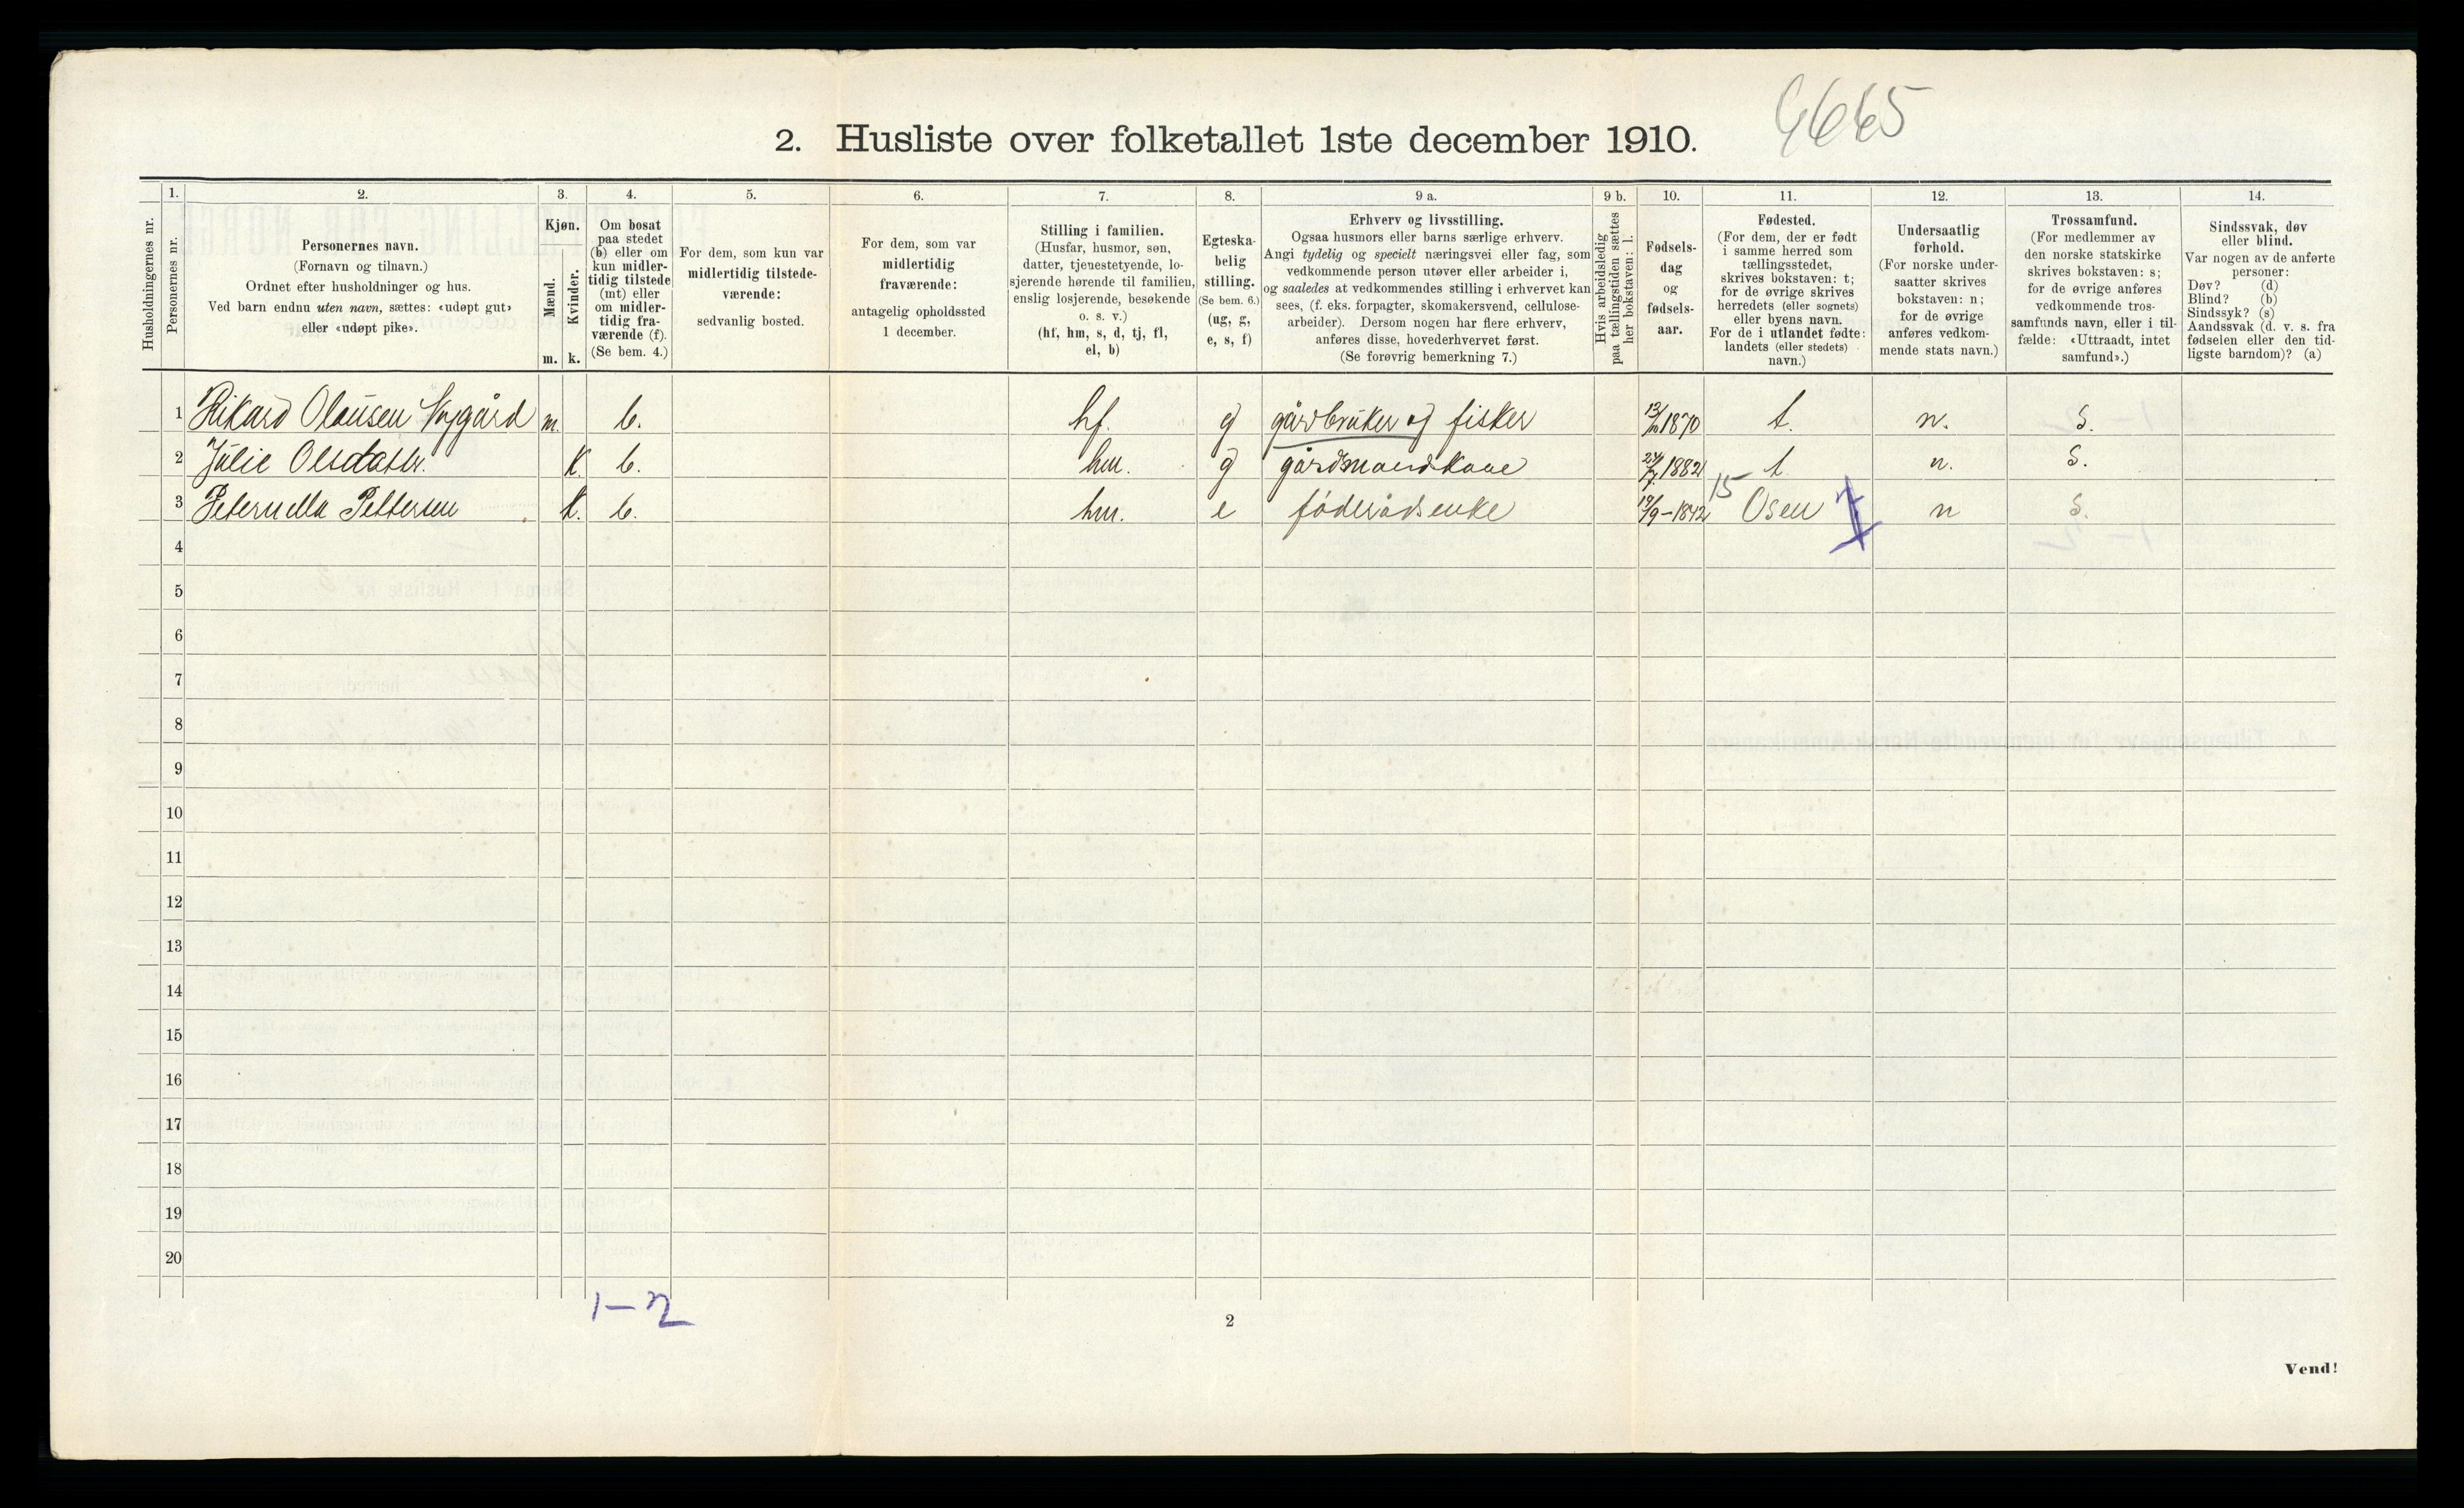 2. Husliste over folketallet 1ste december 1910.
1. 2. 3. 4. 5. 6. 7. 8. 9 a. 9 b. 10. 11. 12. 13. 14.
Husholdningernes nr.
Personernes nr.
Personernes navn.
(Fornavn og tilnavn.)
Ordnet efter husholdninger og hus.
Ved barn endnu uten navn, sættes: «udøpt gut»
eller «udøpt pike».
Kjøn.
Mænd.
Kvinder.
m. k.
Om bosat
paa stedet
(b) eller om
kun midler-
tidig tilstede
(mt) eller
om midler-
tidig fra-
værende (f).
(Se bem. 4.)
For dem, som kun var
midlertidig tilstede-
værende:
sedvanlig bosted.
For dem, som var
midlertidig
fraværende:
antagelig opholdssted
1 december.
Stilling i familien.
(Husfar, husmor, søn,
datter, tjenestetyende, lo-
sjerende hørende til familien,
enslig losjerende, besøkende
o. s. v.)
(hf, hm, s, d, tj, fl,
el, b)
Egteska-
belig
stilling.
(Se bem. 6.)
(ug, g,
e, s, f)
Erhverv og livsstilling.
Ogsaa husmors eller barns særlige erhverv.
Angi tydelig og specielt næringsvei eller fag, som
vedkommende person utøver eller arbeider i,
og saaledes at vedkommendes stilling i erhvervet kan
sees, (f. eks. forpagter, skomakersvend, cellulose-
arbeider). Dersom nogen har flere erhverv,
anføres disse, hovederhvervet først.
(Se forøvrig bemerkning 7.)
Hvis arbeidsledig
paa tællingstiden sættes
her bokstaven: l.
Fødsels-
dag
og
fødsels-
aar.
Fødested.
(For dem, der er født
i samme herred som
tællingsstedet,
skrives bokstaven: t;
for de øvrige skrives
herredets (eller sognets)
eller byens navn.
For de i utlandet fødte:
landets (eller stedets)
navn.)
Undersaatlig
forhold.
(For norske under-
saatter skrives
bokstaven: n;
for de øvrige
anføres vedkom-
mende stats navn.)
Trossamfund.
(For medlemmer av
den norske statskirke
skrives bokstaven: s;
for de øvrige anføres
vedkommende tros-
samfunds navn, eller i til-
fælde: «Uttraadt, intet
samfund».)
Sindssvak, døv
eller blind.
Var nogen av de anførte
personer:
Døv? (d)
Blind? (b)
Sindssyk? (s)
Aandssvak (d. v. s. fra
fødselen eller den tid-
ligste barndom)? (a)
1 Rikard Olausen Nygård m. b. hf. g gårdbruker og fisker 1870 t. n. s.
2 Julie Olsdattr. K. b. hm. g gårdmandskone 1882 t. n. s.
15
3 Peternella Pettersen K. b. hm. e føderådsenke 19/9-1842 Osen n s.
4
5
6
7
8
9
10
11
12
13
14
15
16
17
18
19
20
1-2
2
Vend!